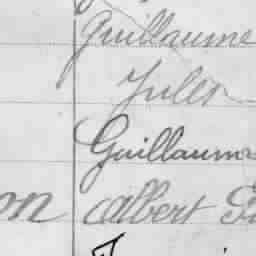 Guillaume
Jules
Guillaume
on Albert